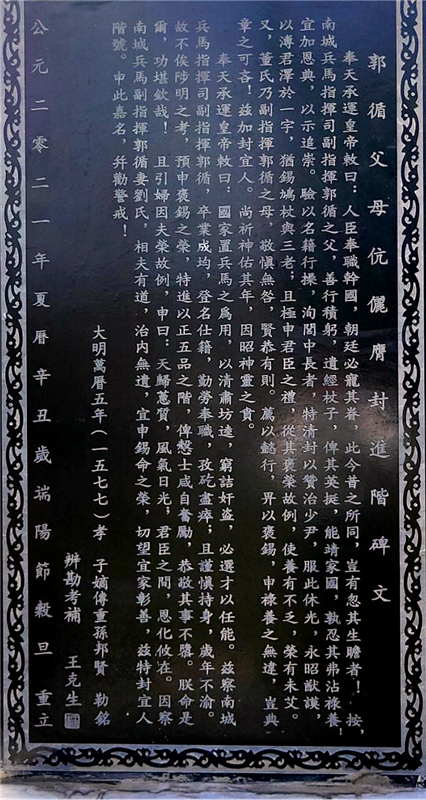 郭循父母伉儷膺封進階碑文
奉天承運皇帝敕曰：人臣奉職幹國，朝廷必寵其眷，此今昔之所同，豈有忽其生贍者！　按，
南城兵馬指揮司副指揮郭循之父，善行積躬，遺經杖子，俾其英挺，能靖家國，孰忍其弗沾祿養，
宜加恩典，以示追崇。驗以名籍行操，洵閭中長者，特清封以贊治少尹，服此休光，永昭猷謨，
以溥君澤於一宇，猶錫鳩杖與三老；且極申君臣之禮，從其褒榮故例，使養有不乏，榮有未艾。
又，董氏乃副指揮郭循之母，敬慎無咎，賢恭有則。薦以懿行，畀以褒錫，申祿養之無違，豈典
章之可吝！茲加封宜人。尚祈神佑其年，因昭神靈之貺。
奉天承運皇帝敕曰：國家置兵馬之為用，以清肅坊逵，窮詰奸盜，必選才以任能。茲察南城
兵馬指揮司副指揮郭循，卒業成均，登名仕籍，勤勞奉職，孜矻盡瘁，且謹慎持身，歲年不渝。
故不俟陟明之考，預申褒錫之榮，特進以正五品之階，俾慇士咸自奮勵，恭敬其事不隳。朕命是
爾，功堪欽哉！　且引婦因夫榮故例，申曰：天歸蕙質，風氣日光，君臣之間，恩化攸在。因察
南城兵馬副指揮郭循妻劉氏，相夫有道，治內無遺，宜申錫命之榮，切望宜家彰善，茲特封宜人
階號。申此嘉名，并勸警戒！
大明萬曆五年（一五七七）孝　子嫡傳重孫邦賢　勒銘
辨勘考補　王克生
公元二零二一年夏曆辛丑歲端陽節穀旦重立